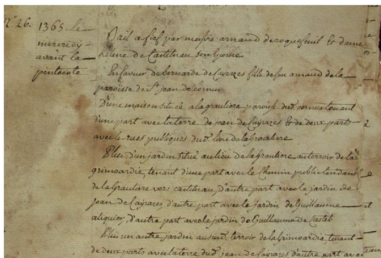 N.° 26. 1365. le
mercredy
avant la
pentecote
Bail a fief par messire arnaud de roquefeuil & dame
helene de Castelnau son Epouse
En faveur de bernarde de Cayres fille de feu arnaud de la
paroisse de St. jean de
D'une maison size a la graulire paroisse dud.
d'une part avec la terre de jean de Cayares & de deux parts
avec les rues publiques dud. lieu de la
Plus d'un jardin situé au lieu de la Graulire au terroir de la
grimoardie, tenant d'une part avec le chemin public tendant
de la Graulire vers castelnau, d'autre part avec le jardin de
jean de Cayares d'autre part avec le jardin de Guillaume
d'autre part avec le jardin de Guillaume de Castel
Plus un autre jardin au susd. terroir de la Grimoardie tenant
de deux parts avec la terre dud. jean de Cayares d'autre part avec